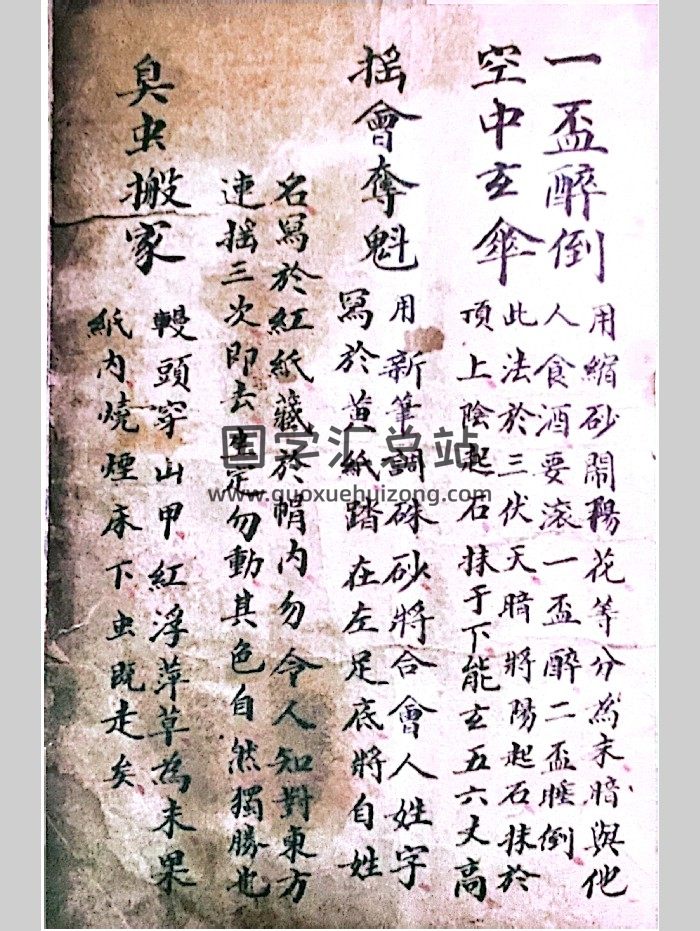 一盃醉倒
用縮砂鬧楊花等分為末暗與他
人食酒要滚一盃醉二盃睡倒
空中玄傘
此法於三伏天暗將陽起石抹於
頂上陰起石抹于下能玄五六丈高
摇會奪魁
用新筆調硃砂將合會人姓字
寫於黃紙踏在左足底將自姓
名寫於紅紙藏於帽內勿令人知對東方
連摇三次即去坐定勿動其色自然獨勝也
臭虫搬家
鰻頭穿山甲紅浮萍草為末果
紙內燒煙床下虫既走矣
国学汇总站
www.guoxuehuizong.com